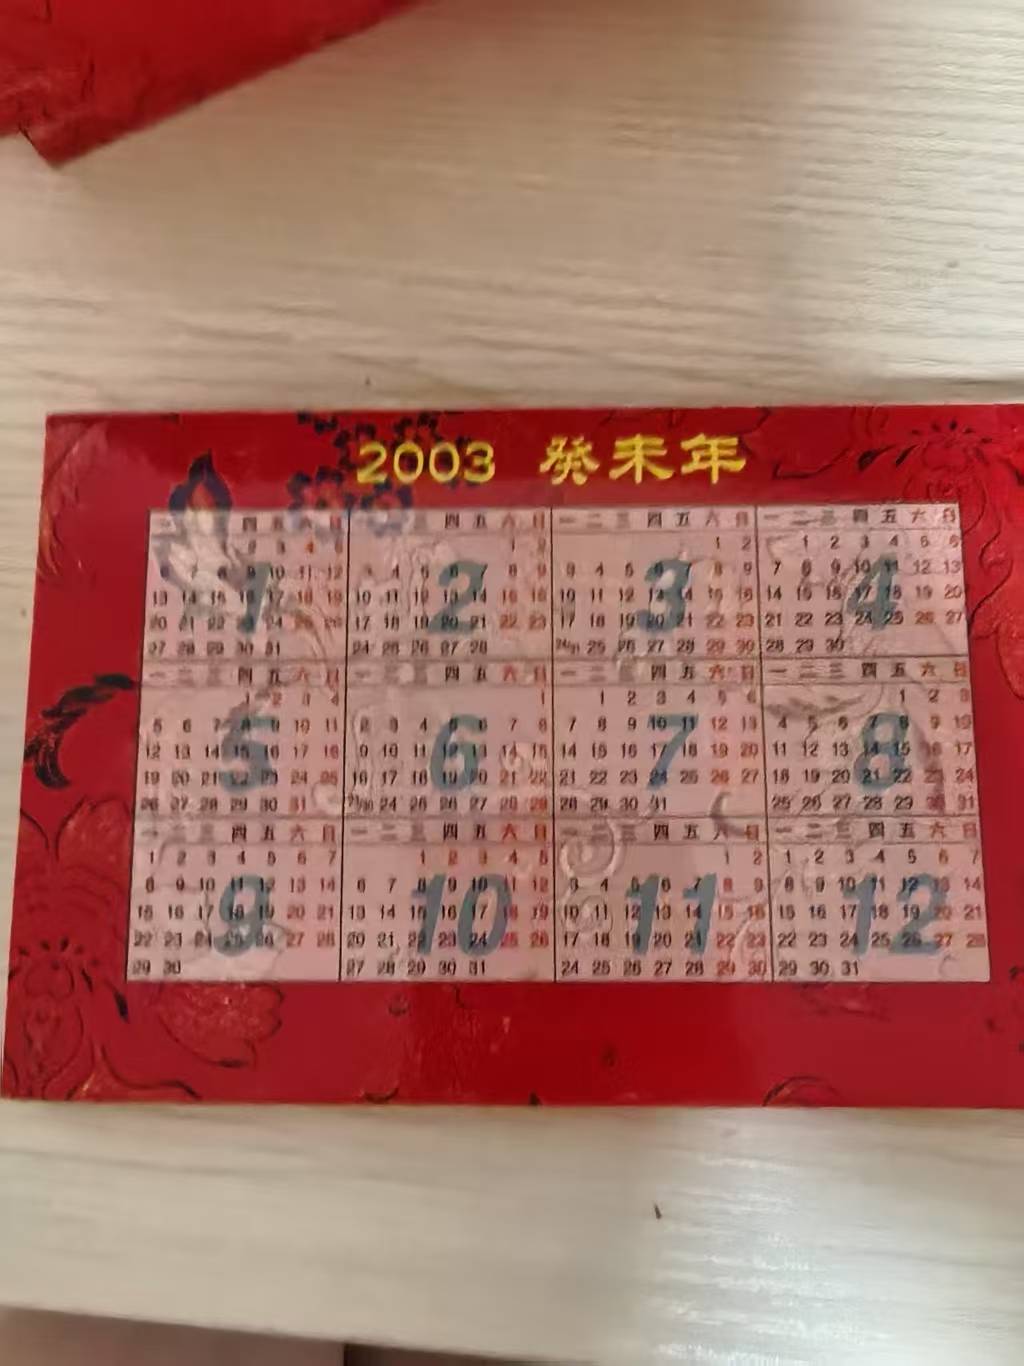 2003 癸未年
四 五 六 日 三 四 五 六 日 一 二 三 四 五 六 日 一 二 三 四 五 六 日
2 3 4 5 1 2 1 2 1 2 3 4 5 6
7 8 9 10 11 12 3 4 5 6 7 8 9 3 4 5 6 7 8 9 7 8 9 10 11 12 13
13 14 15 16 17 18 19 10 11 12 13 14 15 16 10 11 12 13 14 15 16 14 15 16 17 18 19 20
20 21 22 23 24 25 26 17 18 19 20 21 22 23 17 18 19 20 21 22 23 21 22 23 24 25 26 27
27 28 29 30 31 24 25 26 27 28 24/31 25 26 27 28 29 30 28 29 30
1 2 3 4
一 二 三 四 五 六 日 一 二 三 四 五 六 日 一 二 三 四 五 六 日 一 二 三 四 五 六 日
1 2 3 4 1 1 2 3 4 5 6 1 2 3
5 6 7 8 9 10 11 2 3 4 5 6 7 8 7 8 9 10 11 12 13 4 5 6 7 8 9 10
12 13 14 15 16 17 18 9 10 11 12 13 14 15 14 15 16 17 18 19 20 11 12 13 14 15 16 17
19 20 21 22 23 24 25 16 17 18 19 20 21 22 21 22 23 24 25 26 27 18 19 20 21 22 23 24
26 27 28 29 30 31 23/30 24 25 26 27 28 29 28 29 30 31 25 26 27 28 29 30 31
5 6 7 8
一 二 三 四 五 六 日 一 二 三 四 五 六 日 一 二 三 四 五 六 日 一 二 三 四 五 六 日
1 2 3 4 5 6 7 1 2 3 4 5 1 2 1 2 3 4 5 6 7
8 9 10 11 12 13 14 6 7 8 9 10 11 12 3 4 5 6 7 8 9 8 9 10 11 12 13 14
15 16 17 18 19 20 21 13 14 15 16 17 18 19 10 11 12 13 14 15 16 15 16 17 18 19 20 21
22 23 24 25 26 27 28 20 21 22 23 24 25 26 17 18 19 20 21 22 23 22 23 24 25 26 27 28
29 30 27 28 29 30 31 24 25 26 27 28 29 30 29 30 31
9 10 11 12